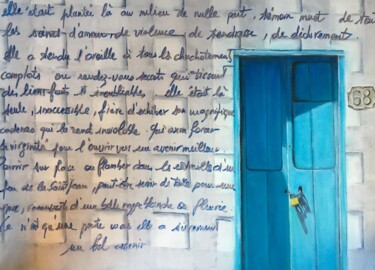 elle était plantée là au milieu de nulle part, témoin muet de tout
les secrets d'amour de violence, de tendresse, de déchirement.
elle a tendu l'oreille à tous les chuchotements,
complots ou rendez-vous secrets qui tissent
des liens forts et inoubliables. elle était là
seule, inaccessible, fière d'exhiber son magnifique
cadenas qui la rend inviolable. Qui osera forcer
virginité pour l'ouvrir vers un avenir meilleur.
sur place ou flamber dans les
feu de la Saint Jean, peut être servir de table pour une
d'une belle nappe blanche ou fleurie.
Ce n'est qu'une porte mais elle a sûrement
un bel avenir
68